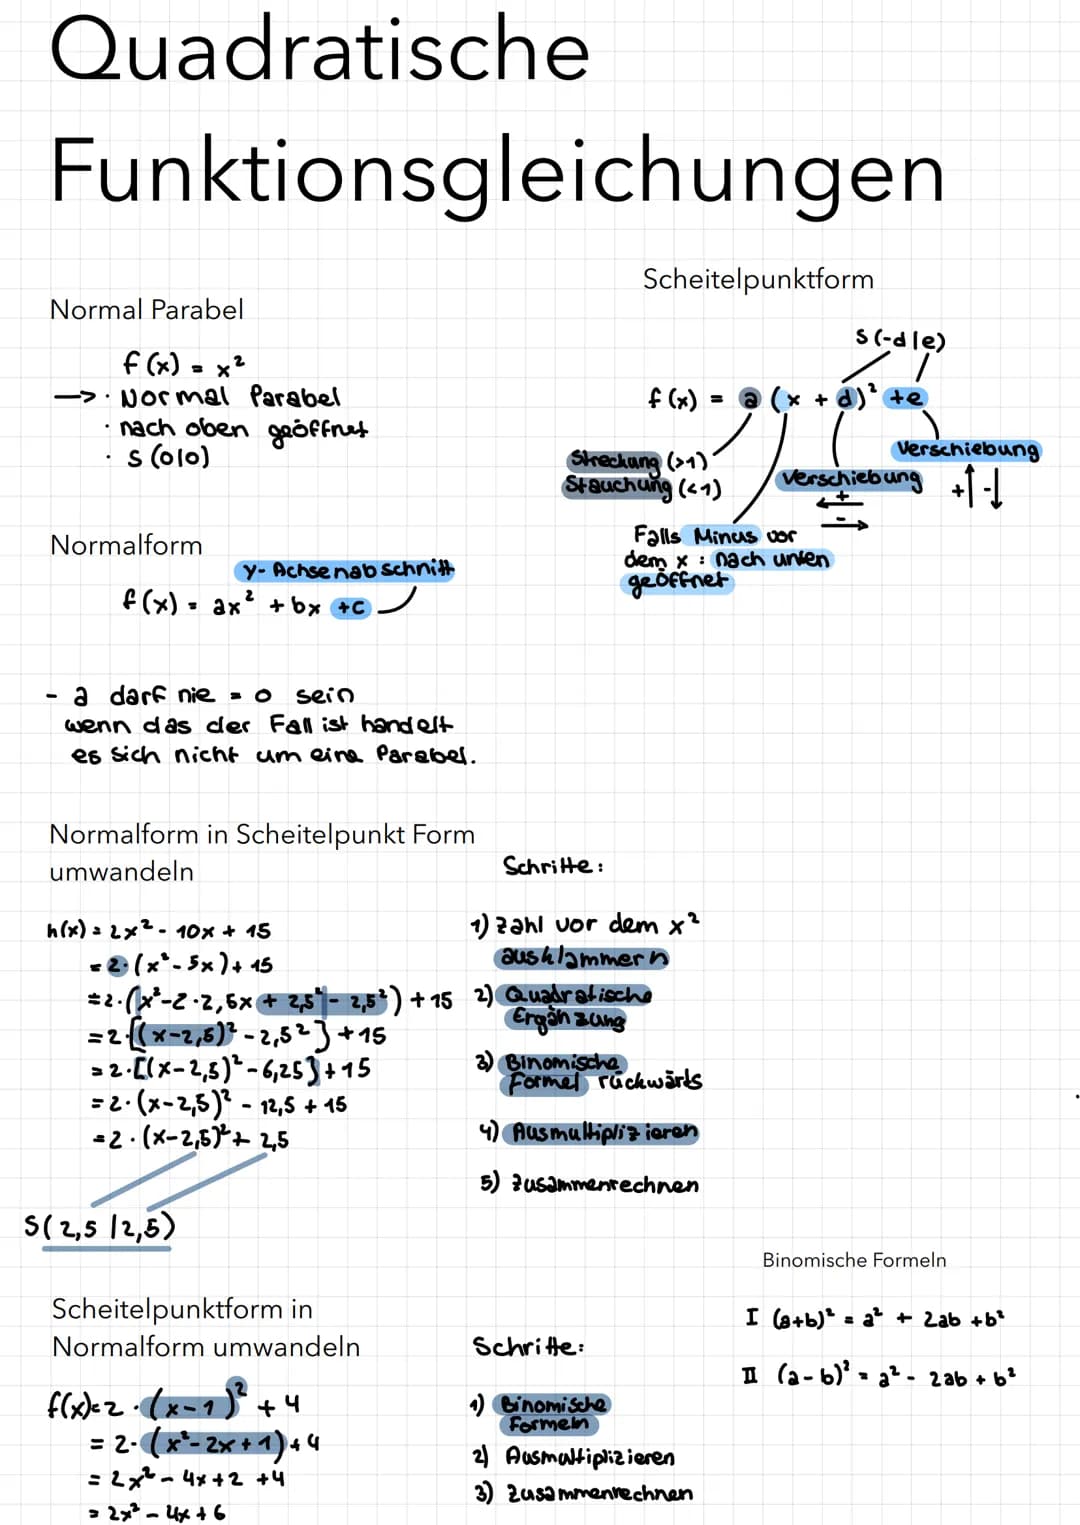 Quadratische
Funktionsgleichungen
Normal Parabel
f(x) = x²
→ · Normal Parabel
· nach oben geöffnet
· S (0|0)
Scheitelpunktform
S(-d|e)
f(x) = a (x + d)² +e
Streckung (>1)
Stauchung (<1)
Verschiebung
+
-
Verschiebung
+↑ -↓
Falls Minus vor
dem x : nach unten
geöffnet
Normalform
y-Achsenabschnitt
f(x) = ax² + bx +c
- a darf nie = 0 sein
wenn das der Fall ist handelt
es sich nicht um eine Parabel.
Normalform in Scheitelpunkt Form
umwandeln
h(x) = 2x² - 10x + 15
= 2·(x² - 5x) + 15
= 2·(x² - 2·2,5x + 2,5² - 2,5²) + 15
= 2·[(x-2,5)² - 2,5²] + 15
= 2·[(x-2,5)² - 6,25] + 15
= 2·(x-2,5)² - 12,5 + 15
= 2·(x-2,5)² + 2,5
S(2,5 |2,5)
Schritte:
1) Zahl vor dem x²
ausklammern
2) Quadratische
Ergänzung
3) Binomische
Formel rückwärts
4) Ausmultiplizieren
5) Zusammenrechnen
Scheitelpunktform in
Normalform umwandeln
f(x)=2·(x-1)² + 4
= 2·(x²-2x+1)+4
= 2x² - 4x+2 +4
= 2x² - 4x + 6
Schritte:
1) Binomische
Formeln
2) Ausmultiplizieren
3) Zusammenrechnen
Binomische Formeln
I (a+b)² = a² + 2ab +b²
II (a-b)² = a² - 2ab + b²